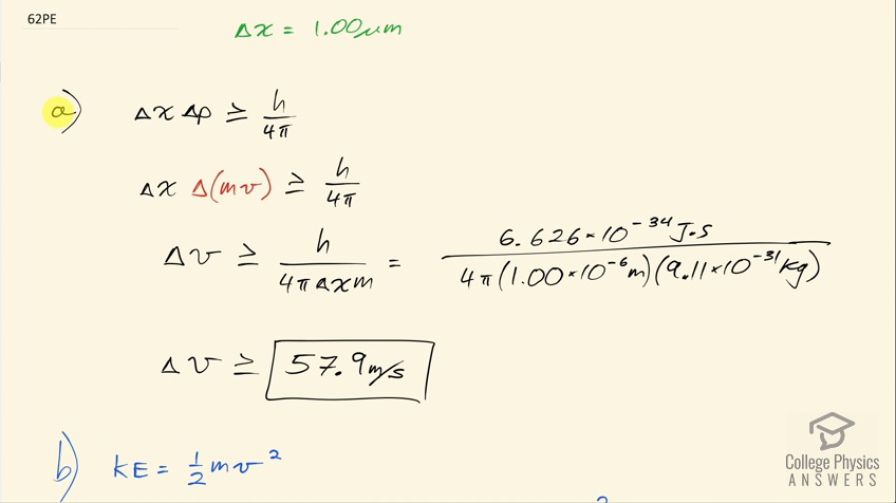 62PE
Δx = 1.00μm
a)
Δx Δp ≥ h/4π
Δx Δ(mv) ≥ h/4π
Δv ≥ h/4πΔxm = 6.626×10⁻³⁴ J·s/4π(1.00×10⁻⁶m)(9.11×10⁻³¹kg)
Δv ≥ 57.9m/s
b) KE = ½mv²
College Physics
ANSWERS